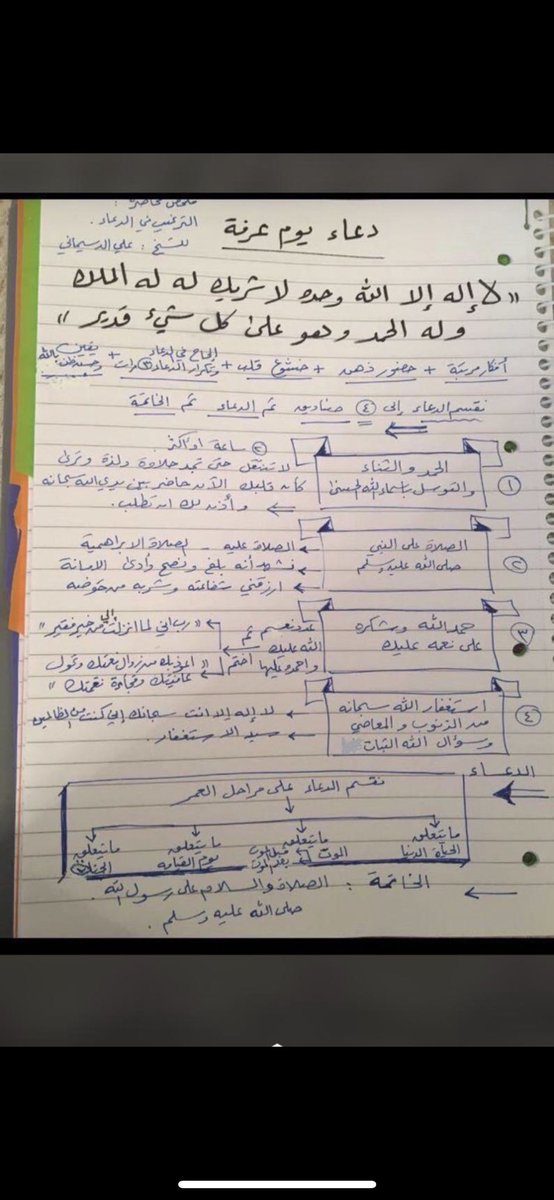 ملخص محاضرة :
الترغيب في الدعاء .
للشيخ : علي الدسيماني
دعاء يوم عرفة
« لا إله إلا الله وحده لا شريك له له الملك
وله الحمد وهو على كل شيء قدير »
أفكار مرتبة + حضور ذهن + خشوع قلب + إلحاح في الدعاء وتكرار الدعاء ٣ مرات + يقين وحسن ظن بالله
نقسم الدعاء إلى ٤ صناديق ثم الدعاء ثم الخاتمة
١
الحمد والثناء
والتوسل بأسماء الله الحسنى
ساعة أو أكثر
لا تنتقل حتى تجد حلاوة ولذة وترى
كأن قلبك الآن حاضر بين يدي الله سبحانه
وأذن لك ان تطلب .
٢
الصلاة على النبي
صلى الله عليه وسلم
الصلاة عليه - الصلاة الابراهيمية
نشهد أنه بلغ ونصح وأدى الامانة
ارزقني شفاعته وشربه من حوضه
٣
حمد الله وشكره
على نعمه عليك
عدد نعم
الله عليك ثم
واحمده عليها أختم
« رب اني لما انزلت الي من خير فقير »
« اعوذ بك من زوال نعمتك وتحول
عافيتك وفجاءة نقمتك »
٤
استغفار الله سبحانه
من الذنوب والمعاصي
وسؤال الله الثبات
لا إله إلا انت سبحانك إني كنت من الظالمين
سيد الاستغفار .
الدعاء
نقسم الدعاء على مراحل العمر
ما يتعلق
الحياة الدنيا
ما يتعلق
الموت
قبل الموت
بعد الموت
ما يتعلق
يوم القيامة
ما يتعلق
الجنة
الخاتمة : الصلاة والسلام على رسول الله .
صلى الله عليه وسلم .